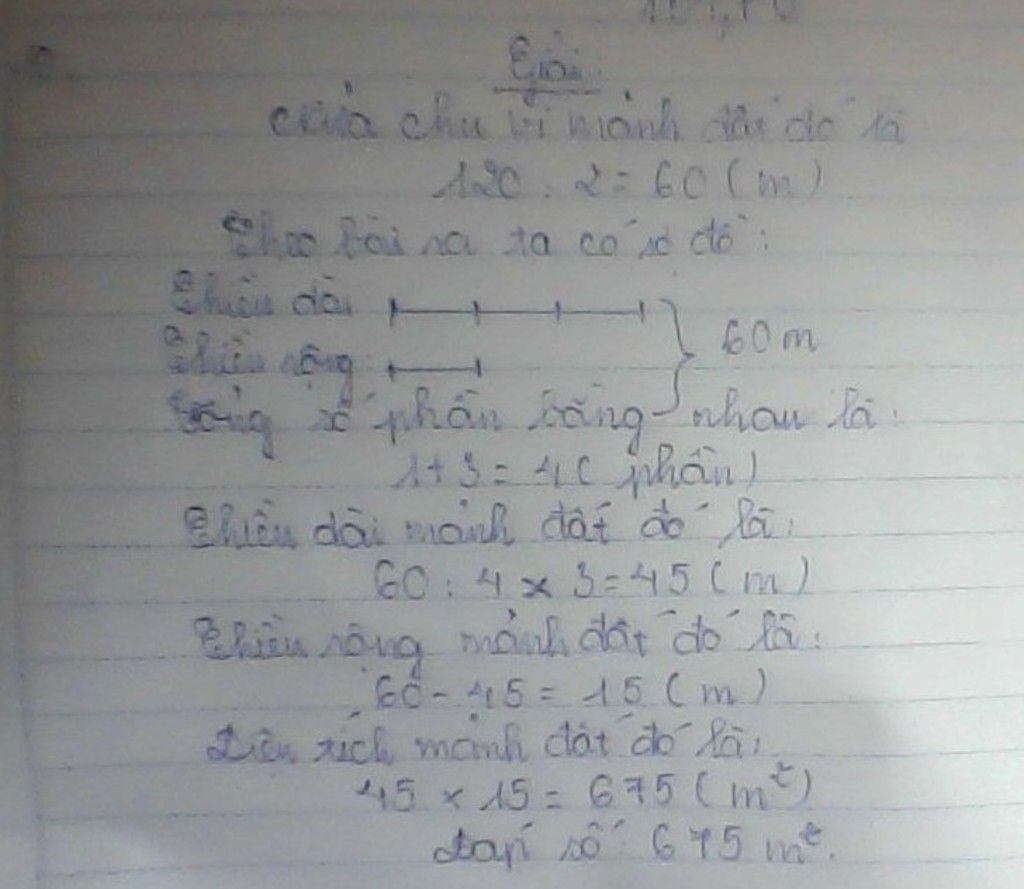 Giải:
Nửa chu vi mảnh đất đó là
120 : 2 = 60 (m)
Theo bài ra ta có sơ đồ:
Chiều dài
60 m
Chiều rộng:
Tổng số phần bằng nhau là:
1 + 3 = 4 ( phần)
Chiều dài mảnh đất đó là:
60 : 4 x 3 = 45 (m)
Chiều rộng mảnh đất đó là:
60 - 45 = 15 (m)
Diện tích mảnh đất đó là:
45 x 15 = 675 (m²)
Đáp số 675 m².